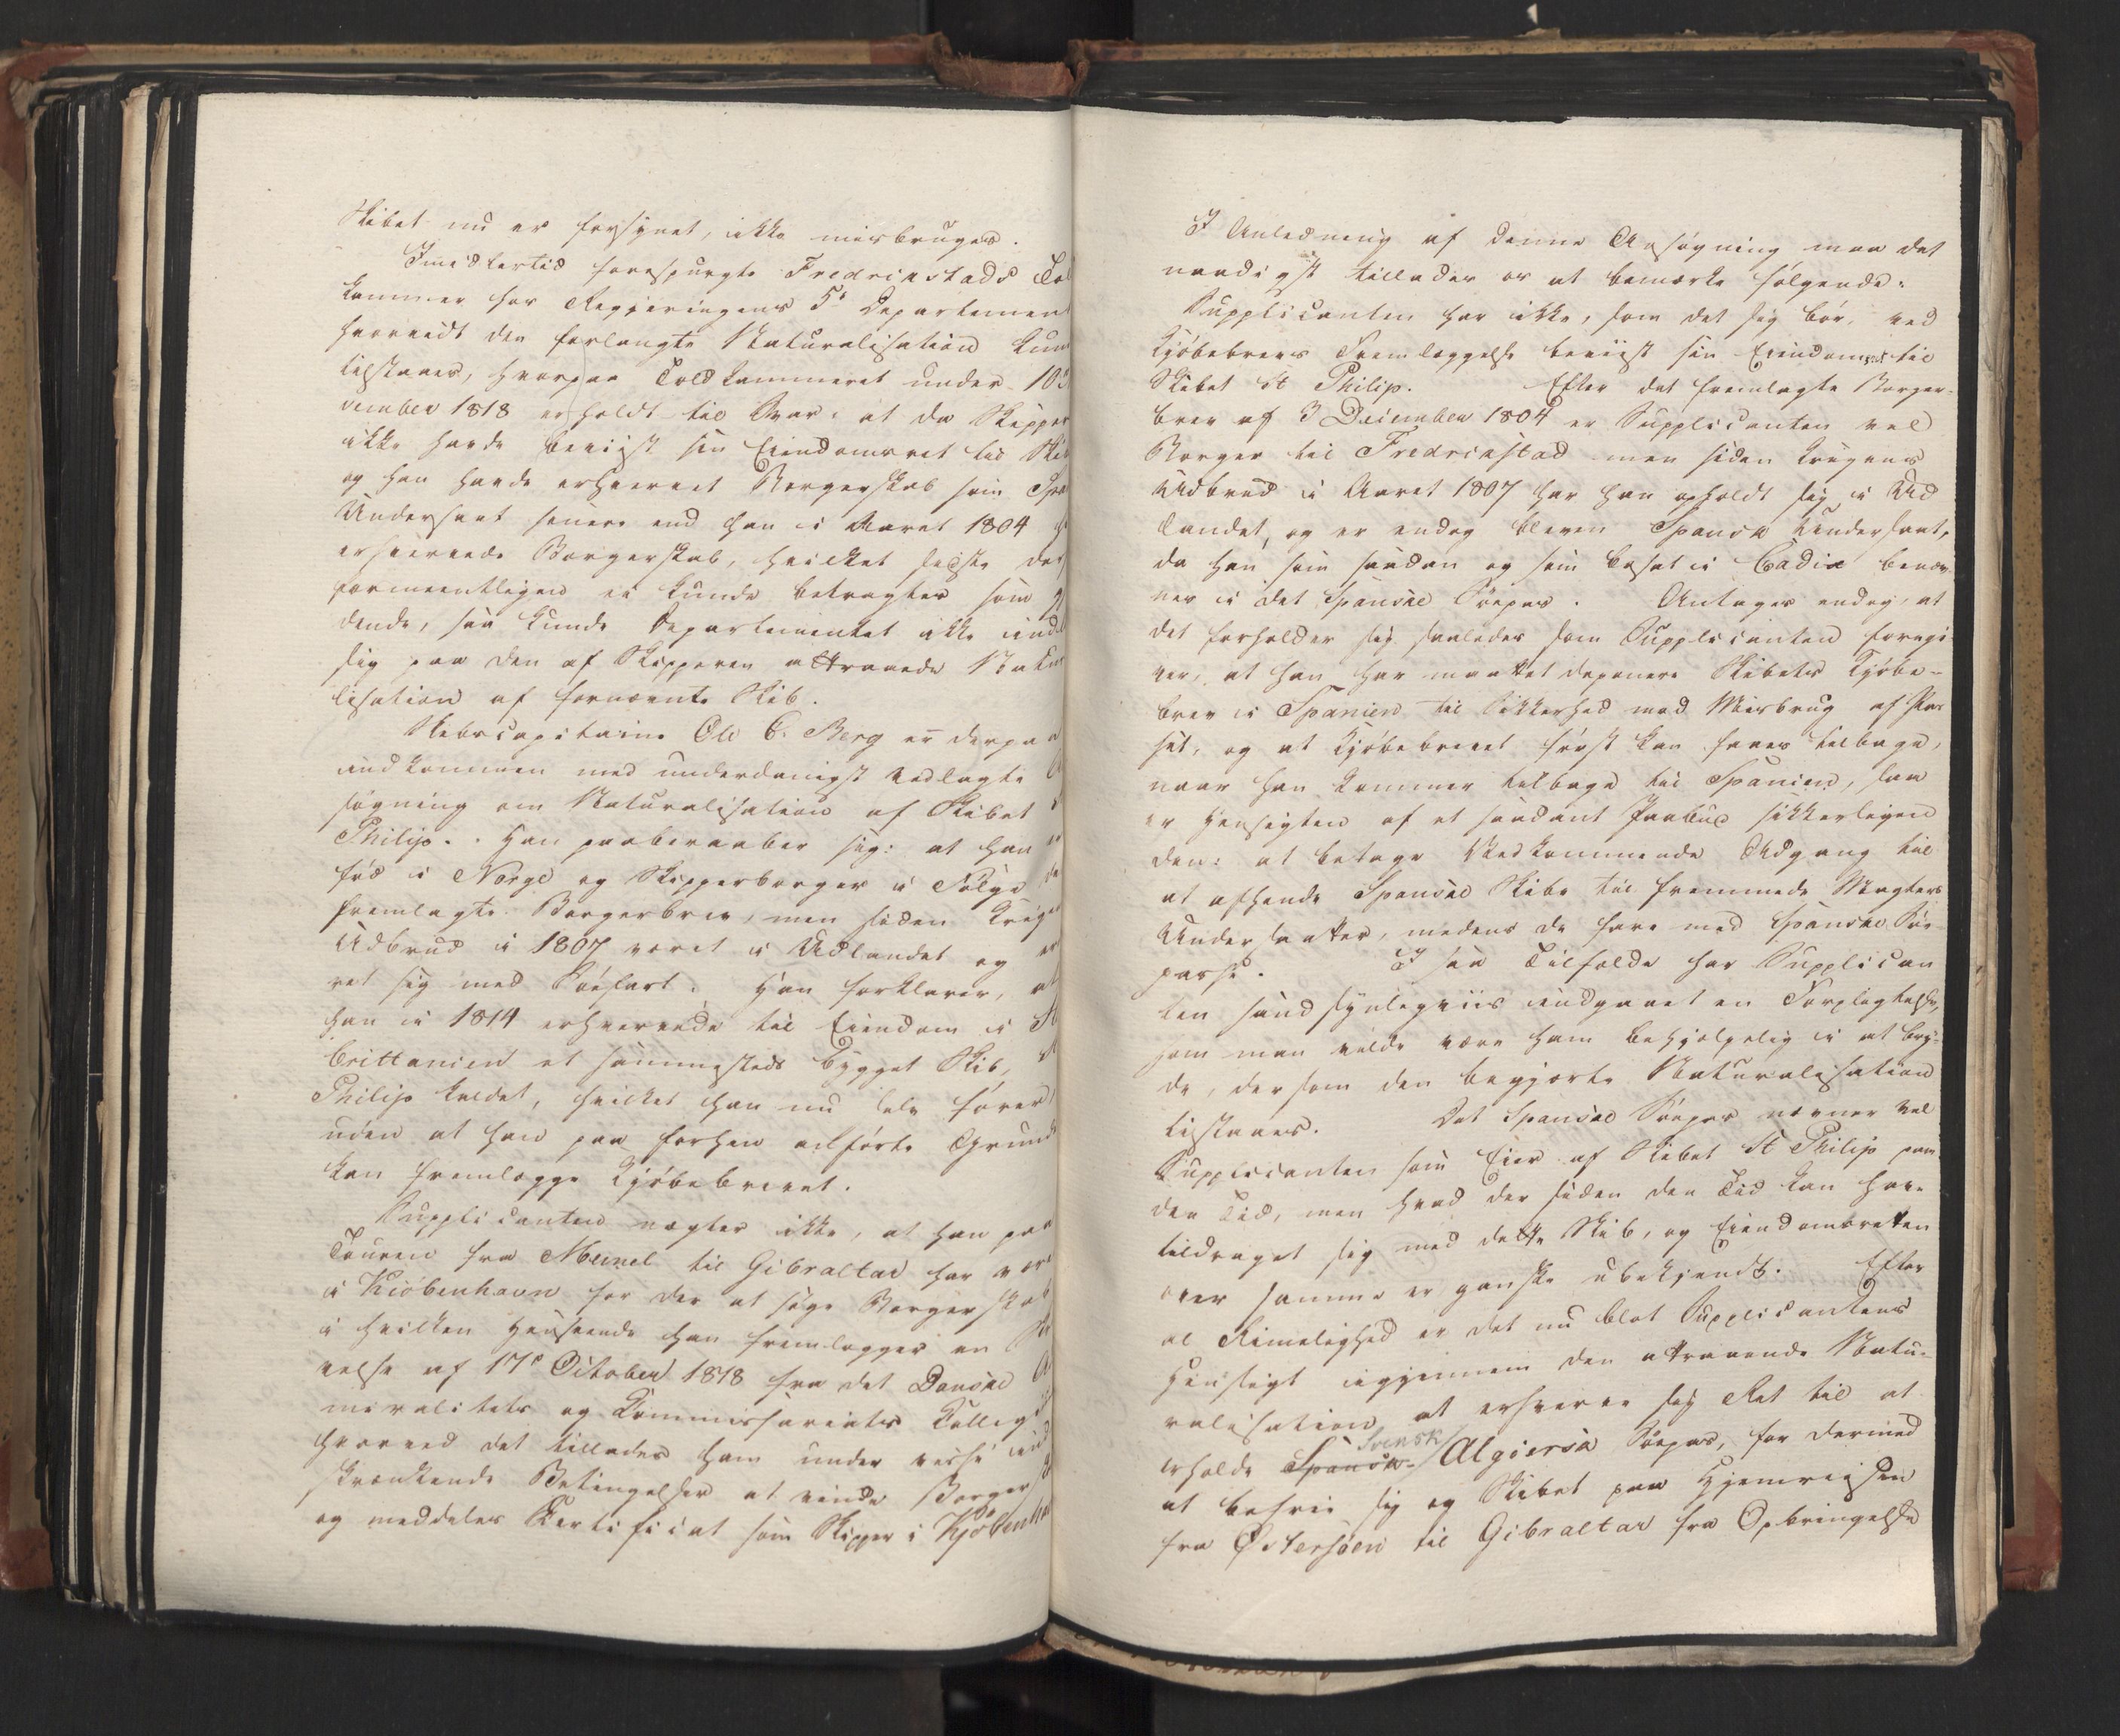 Skibet nu er forsynet, ikke misbruges.
Imidlertid forespurgte Fredricstads Tol
kammer hos Regjeringens 5t Departement
hvorvidt den forlangte Naturalisation kun
tilstaaes, hvorpaa Toldkammeret under 10
vember 1818 erholdt til Svar: at da Skipper
ikke havde beviist sin Eiendomsret til Ski
og han havde erhvervet Borgerskab som Spa
Undersaat senere end han i Aaret 1804
erhvervede Borgerskab, hvilket sidste der
formeentligen ei kunde betragtes som gj
dende, saa kunde Departementet ikke indl
sig paa den af Skipperen attraaede Natur
lisation af fornævnte Skib.
Skibscapitaine Ole C. Berg er derpaa
indkommen med underdanigst vedlagte A
søgning om Naturalisation af Skibet
Philip. Han paaberaaber sig: at han er
fød i Norge og Skipperborger i Følge de
fremlagte Borgerbrev, men siden Krige
Udbrud i 1807 været i Udlandet og er
ret sig med Søefart. Han forklarer, at
han i 1814 erhvervede til Eiendom i
Brittanien et sammesteds bygget Skib, St
Philip kaldet, hvilket han nu selv fører,
uden at han paa forhen anførte Grunde
kan fremlægge Kjøbebrevet.
Supplicanten nægter ikke, at han paa
Touren fra Memel til Gibraltar har være
i Kiöbenhavn for der at søge Borgerskab
i hvilken Henseende han fremlægger en
velse af 17de October 1818 fra det Danske A
miralitets og Commissariats Collegi
hvorved det tillades ham under visse ind
skrænkende Betingelser at vinde Borger
og meddeles Certificat som Skipper i Kjøbenha
I Anledning af denne Ansøgning maa det
naadigst tillades os at bemærke følgende:
Supplicanten har ikke, som det sig bør, ved
Kjøbebrevs Fremlæggelse beviist sin Eiendomsret til
Skibet St Philip. Efter det fremlagte Borger-
brev af 3 December 1804 er Supplicanten vel
Borger til Fredricstad men siden Krigens
Udbrud i Aaret 1807 har han opholdt sig i Ud
landet, og er endog bleven Spansk Undersaat,
da han som saadan og som bosat i Cadix benæv
nes i det Spanske Søepas. Antages endog, at
det forholder sig saaledes som Supplicanten foregi
ver, at han har maattet deponere Skibets Kjøbe-
brev i Spanien til Sikkerhed mod Misbrug af Pas
set, og at Kjøbebrevet først kan faaes tilbage,
naar han kommer tilbage til Spanien, saa
er Hensigten af et saadant Paabud sikkerligen
den: at betage Vedkommende Adgang til
at afhænde Spanske Skibe til fremmede Magters
Undersaatter, medens de fare med Spanske Søe
passe. I saa Tilfælde har Supplican
ten sandsynligviis indgaaet en Forpligtelse,
som man vilde være ham behjelpelig i at bry-
de, dersom den begjerte Naturalisation
tilstaaes. Det Spanske Søepas nævner vel
Supplicanten som Eier af Skibet St Philip paa
den Tid, men hvad der siden den Tid kan have
tildraget sig med dette Skib, og Eiendomsretten
over samme er ganske ubekjendt. Efter
al Rimelighed er det nu blot Supplicantens
Hensigt igjennem den attraaende Natu-
ralisation at erhverve sig Ret til at
Svensk
erholde Spansk Algiersk Søepas, for dermed
at befrie sig og Skibet paa Hjemreisen
fra Østersøen til Gibraltar fra Opbringelse